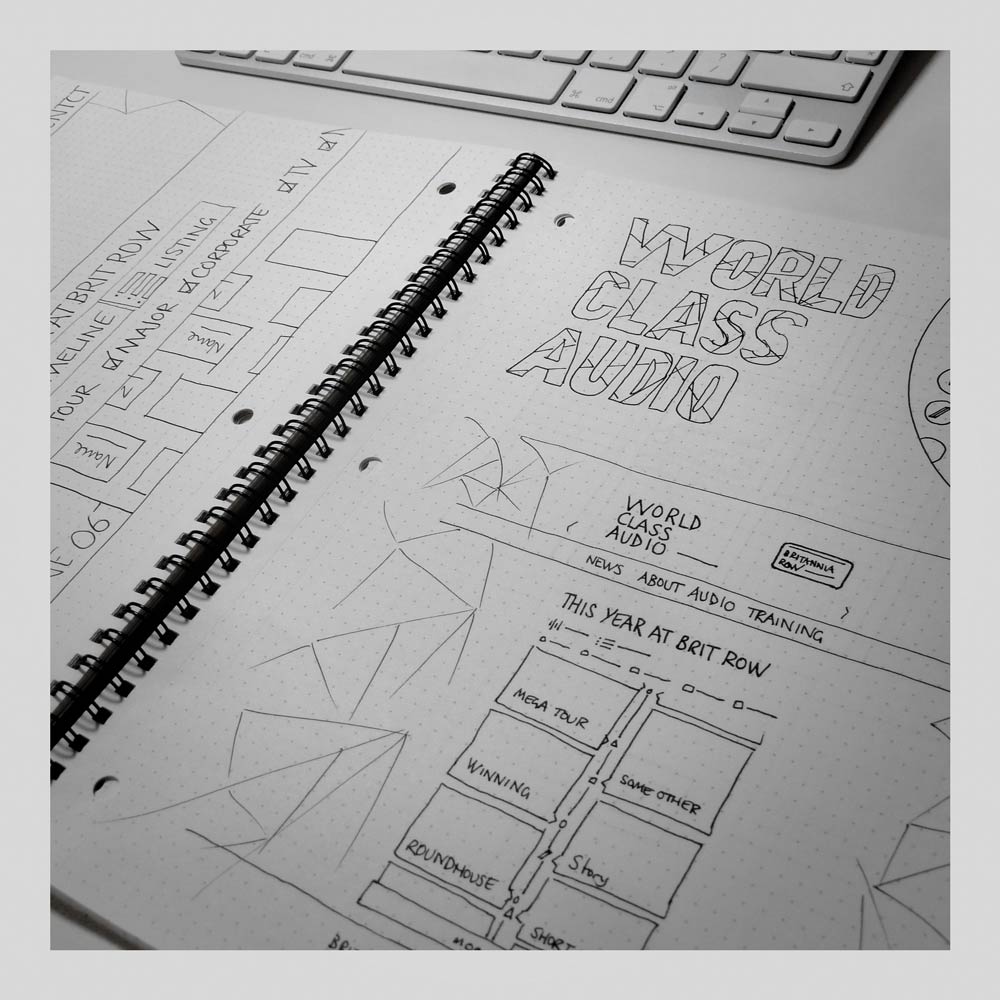 AT BRIT ROW
LISTING
TOUR MAJOR CORPORATE TV
Name
Name
06
WORLD
CLASS
AUDIO
WORLD
CLASS
AUDIO
BRITANNIA
ROW
NEWS ABOUT AUDIO TRAINING
THIS YEAR AT BRIT ROW
MEGA TOUR
WINNING
SOME OTHER
ROUNDHOUSE
Story
SHORT
cmd
cmd